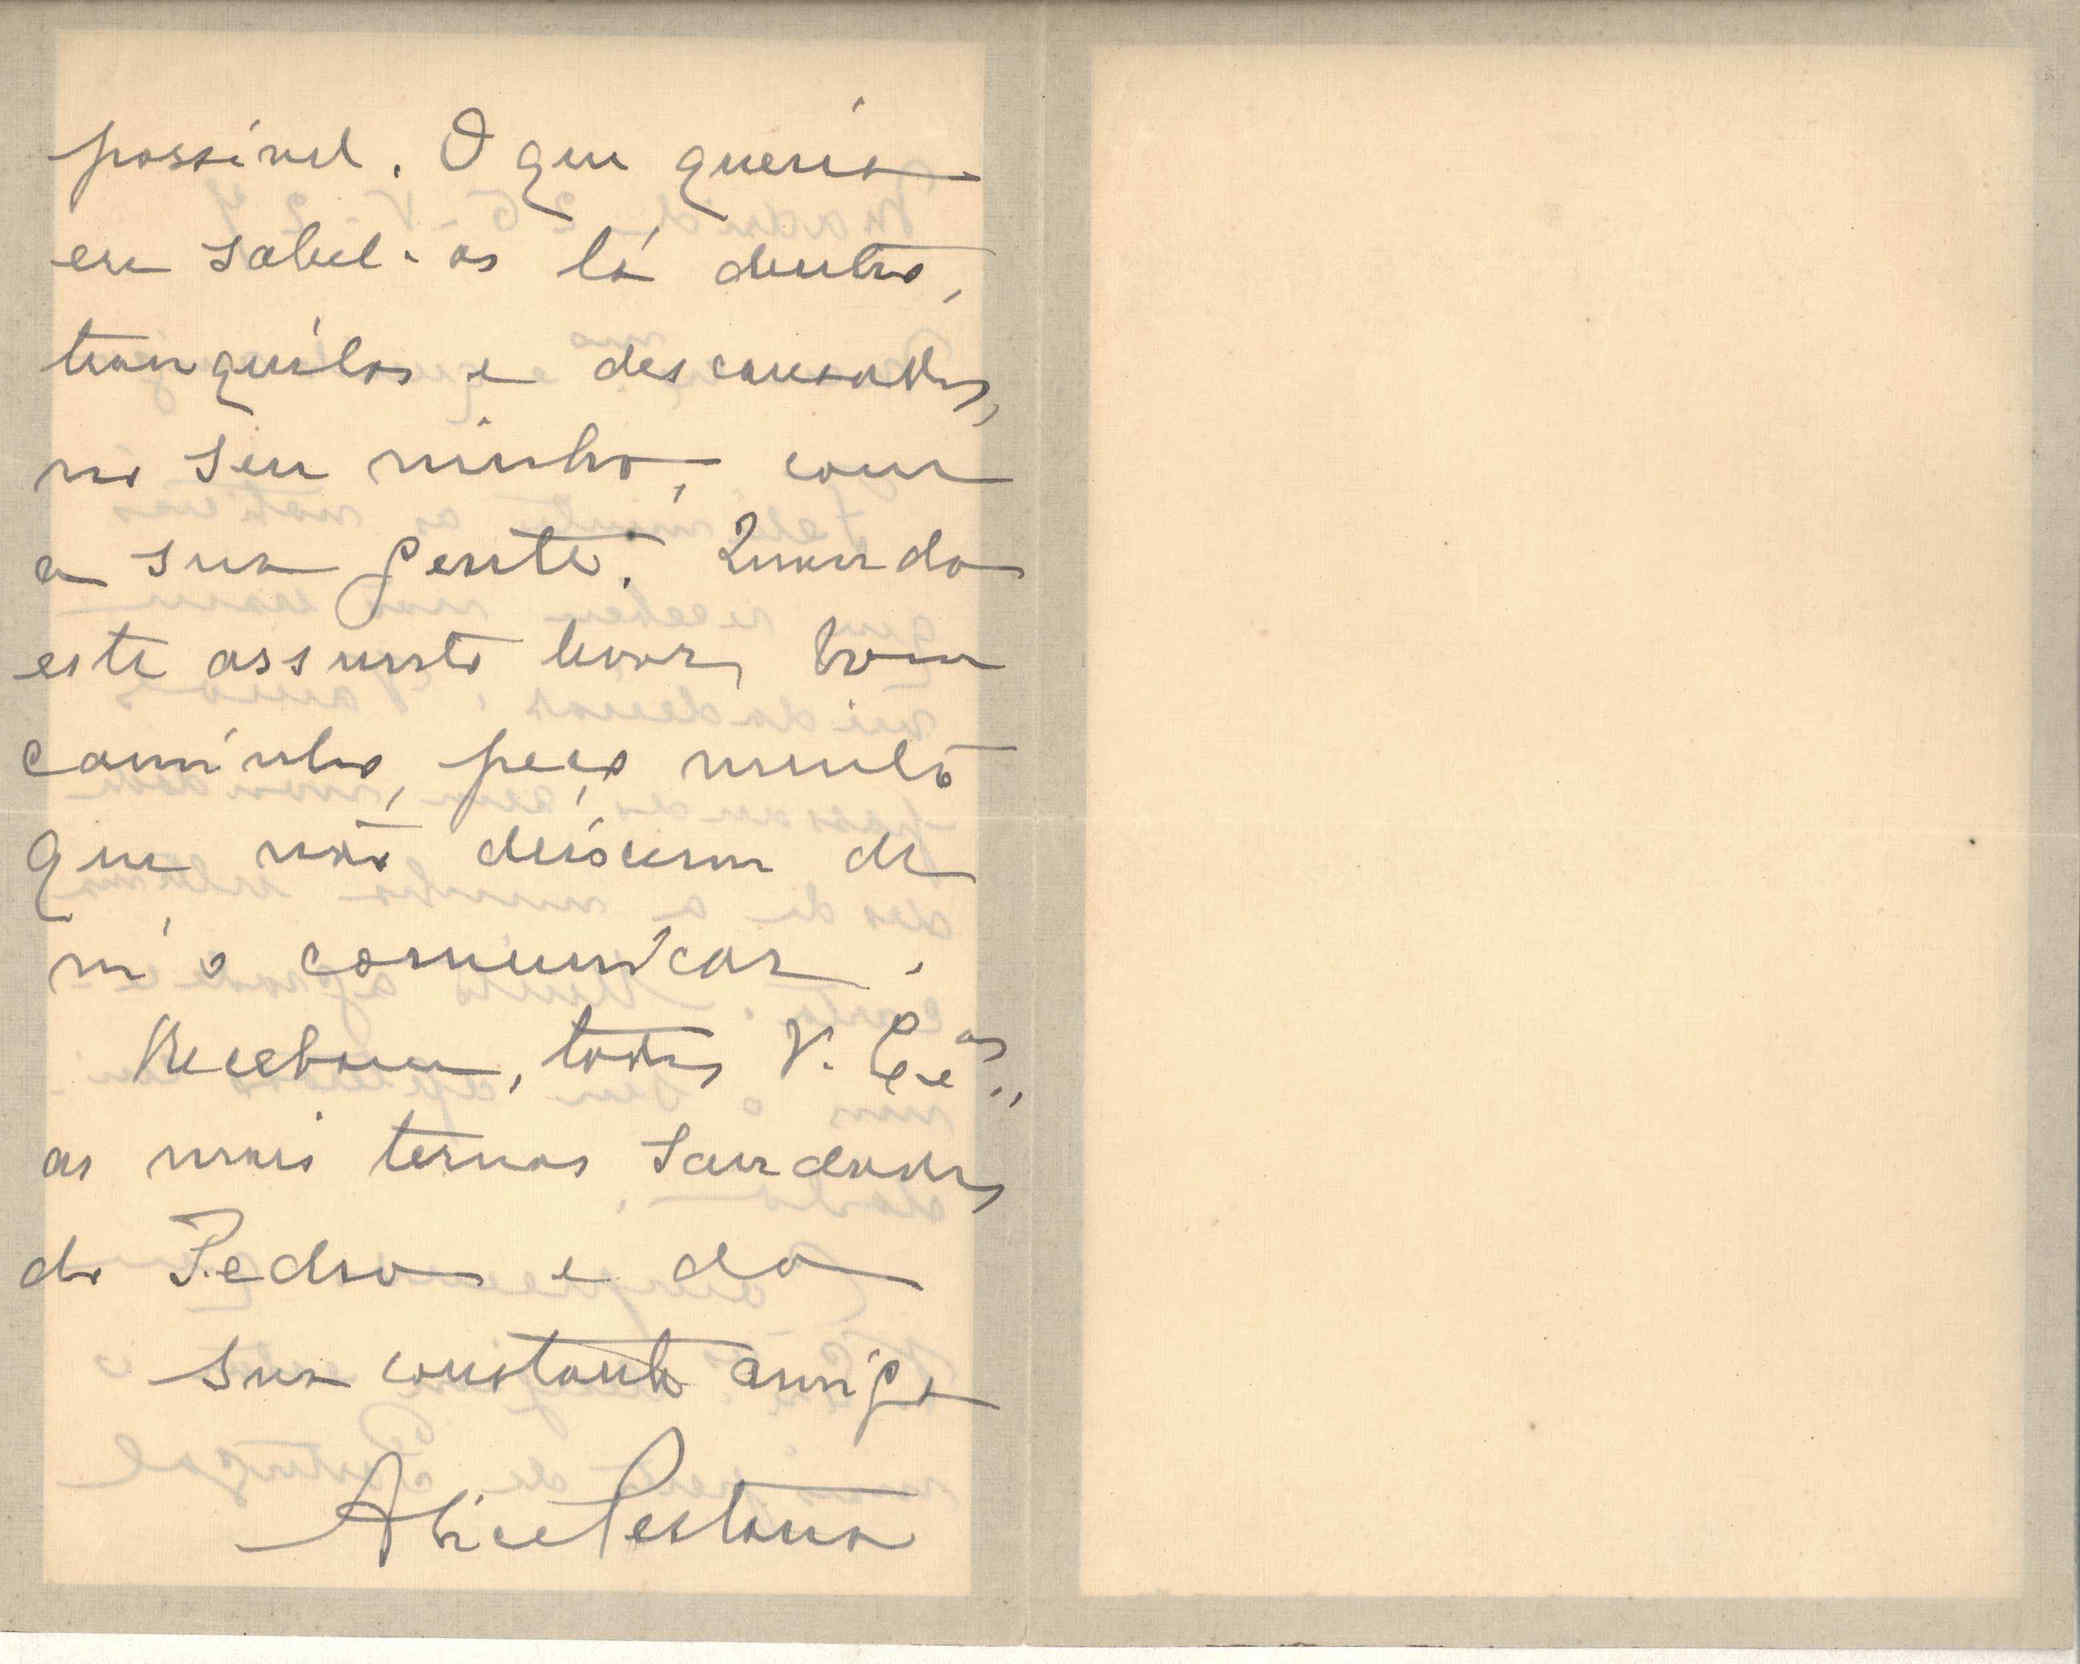 possivel. O que queria
eu sabel-os lá dentro,
tranquilos e descansados,
no seu ninho, com
a sua gente. Quando
este assunto levar bom
caminho, peço muito
que não deixem de
m'o comunicar.
Recebam, todos V. Ex.as,
as mais ternas saudades
do Pedro e da
sua constante amiga
Alice Pestana